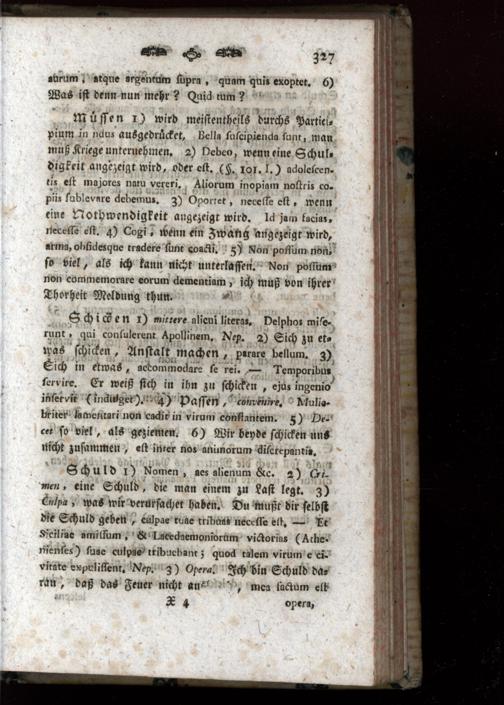 327
aurum, atque argentum supra, quam quis exoptet. 6)
Was ist denn nun mehr? Quid tum?
Müssen 1) wird meistentheils durchs Partici-
pium in ndus ausgedrücket. Bella suscipienda sunt, man
muß Kriege unternehmen. 2) Debeo, wenn eine Schul-
digkeit angezeigt wird, oder est. (§. 101. I.) adolescen-
tis est majores natu vereri. Aliorum inopiam nostris co-
piis sublevare debemus. 3) Oportet, necesse est, wenn
eine Nothwendigkeit angezeigt wird. Id jam facias,
necesse est. 4) Cogi, wenn ein Zwang angezeigt wird,
arma, obsidesque tradere sunt coacti. 5) Non possum non,
so viel, als ich kann nicht unterlassen. Non possum
non commemorare eorum dementiam, ich muß von ihrer
Thorheit Meldung thun.
Schicken 1) mittere alicui literas. Delphos mise-
runt, qui consulerent Apollinem. Nep. 2) Sich zu et-
was schicken, Anstalt machen, parare bellum. 3)
Sich in etwas, accommodare se rei. — Temporibus
servire. Er weiß sich in ihn zu schicken, ejus ingenio
inservit (indulget). 4) Passen, convenire. Mulie-
briter lamentari non cadit in virum constantem. 5) De-
cet so viel, als geziemen. 6) Wir beyde schicken uns
nicht zusammen, est inter nos animorum discrepantia.
Schuld 1) Nomen, aes alienum &c. 2) Cri-
men, eine Schuld, die man einem zu Last legt. 3)
Culpa, was wir verursachet haben. Du mußt dir selbst
die Schuld geben, culpae tuae tribuas necesse est. — Et
Siciliae amissum, & Lacedaemoniorum victorias (Athe-
nienses) suae culpae tribuebant; quod talem virum e ci-
vitate expulissent. Nep. 3) Opera. Ich bin Schuld da-
ran, daß das Feuer nicht , mea factum est
X 4 opera,